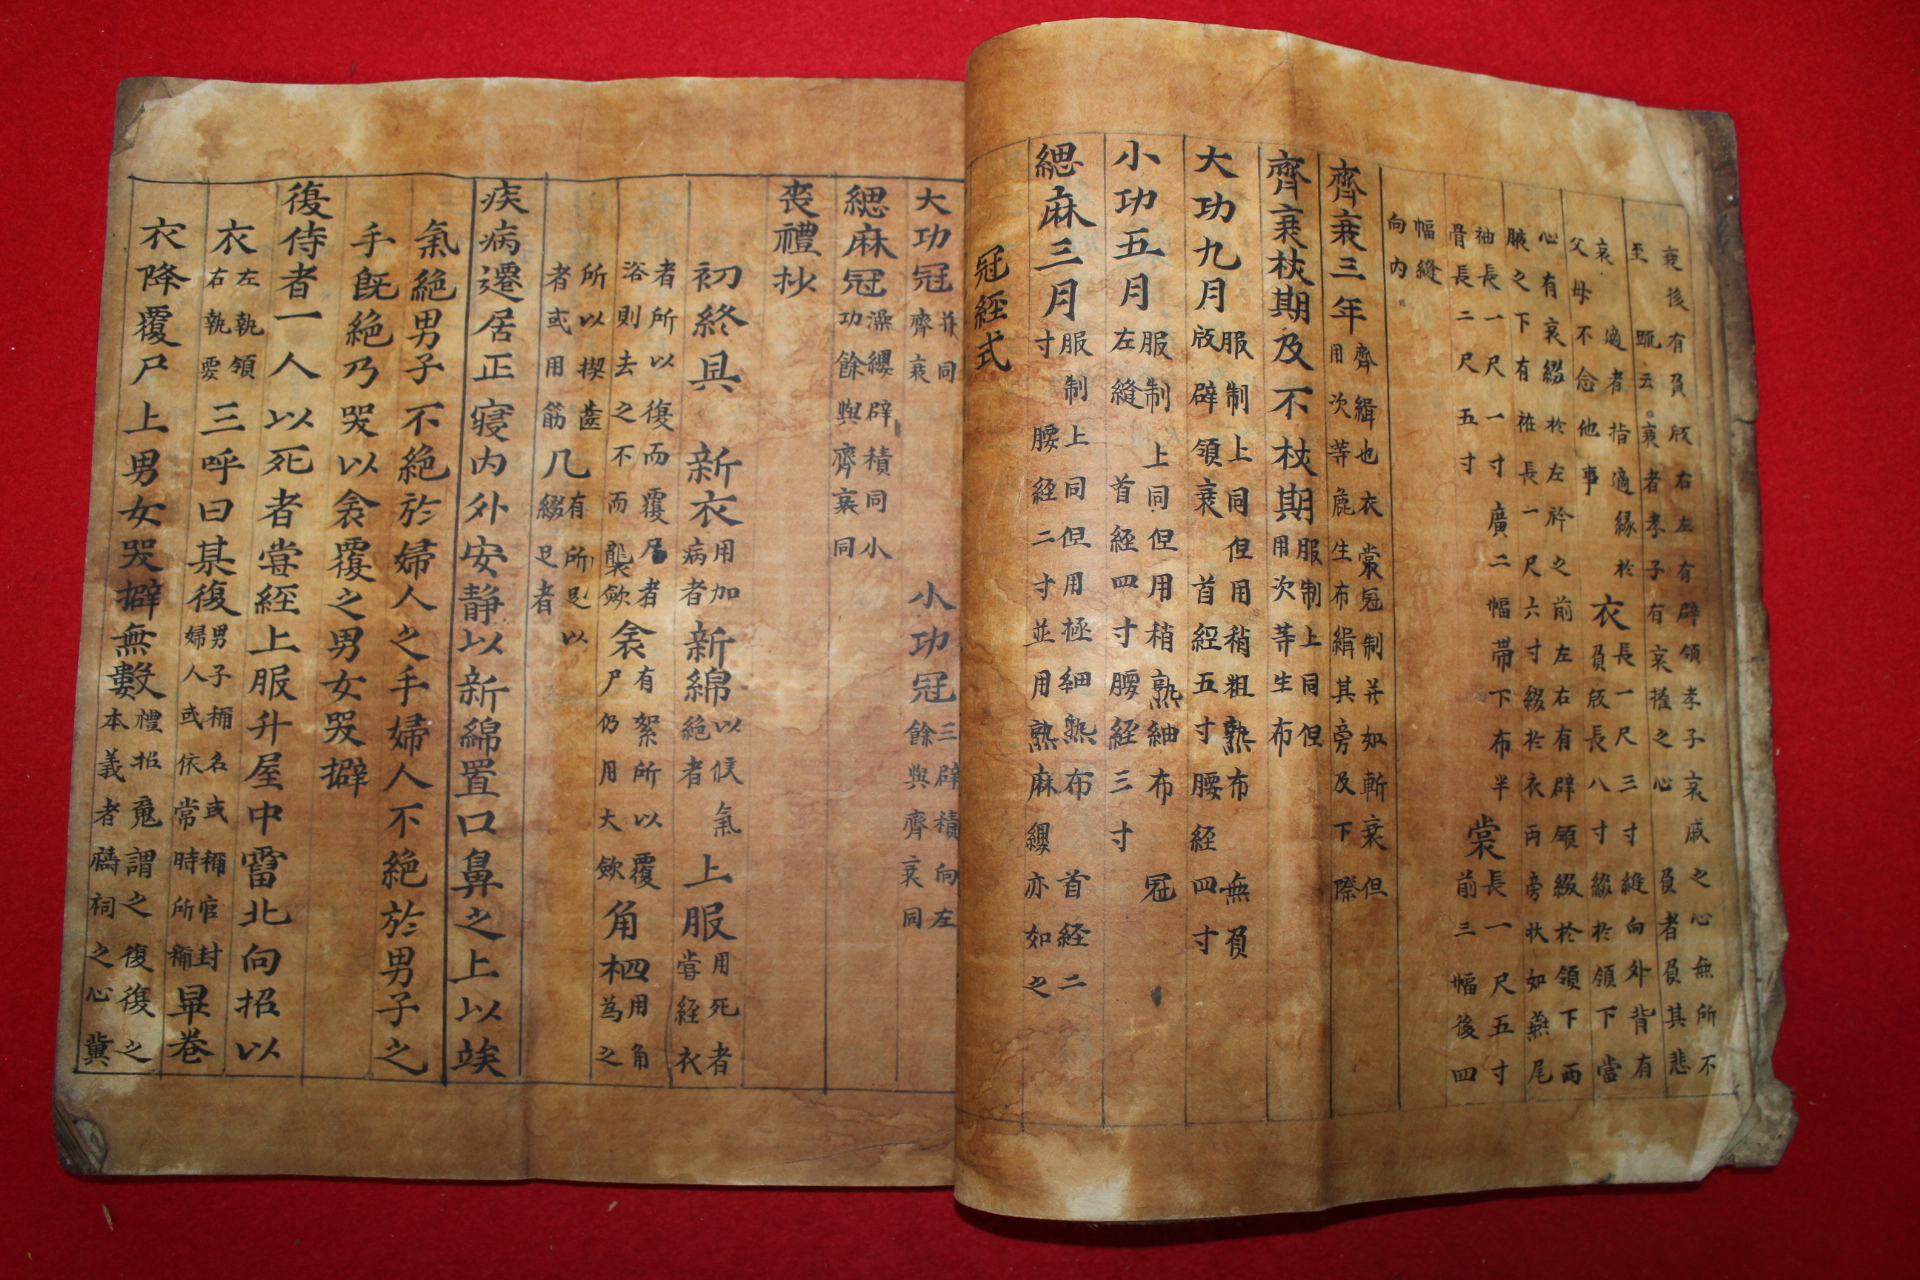 衰後有負版右左有辟領孝子哀戚之心無所不
至 䟽云衰者孝子有哀摧之心 負者負其悲
哀 適者指適緣於
父母不念他事
衣
長一尺三寸縫向外背有
負版長八寸綴於領下當
心有衰綴於左衿之前左右有辟領綴於領下兩
腋之下有袵長一尺六寸綴於衣兩旁狀如燕尾
袖長一尺一寸廣二幅帶下布半
骨長二尺五寸
裳
長一尺五寸
前三幅後四
幅縫
向內
齊衰三年
齊緝也衣裳冠制並如斬衰但
用次等麁生布緝其旁及下際
齊衰杖期及不杖期
服制上同但
用次等生布
大功九月
服制上同但用稍粗熟布 無負
版辟領衰 首絰五寸腰絰四寸
小功五月
服制上同但用稍熟細布 冠
左縫 首絰四寸腰絰三寸
緦麻三月
服制上同但用極細熟布 首絰二
寸 腰絰二寸並用熟麻纓亦如之
冠絰式
大功冠
並同
齊衰
小功冠
三辟積向左
餘與齊衰同
緦麻冠
澡纓辟積同小
功餘與齊衰同
喪禮抄
初終具 新衣
用加
病者
新綿
以候氣
絕者
上服
用死者
嘗經衣
者所以復而覆尸者
浴則去之不而襲斂
衾
有絮所以覆
尸仍用大斂
角柶
用角
為之
所以楔齒
者或用筋
几
有所以
綴足者
疾病遷居正寢內外安靜以新綿置口鼻之上以俟
氣絕男子不絕於婦人之手婦人不絕於男子之
手旣絕乃哭以衾覆之男女哭擗
復侍者一人以死者嘗經上服升屋中霤北向招以
衣
左執領
右執要
三呼曰某復
男子稱名或稱官封
婦人或依常時所稱
畢卷
衣降覆尸上男女哭擗無數
禮招䰟謂之復復之
本義者禱祠之心冀